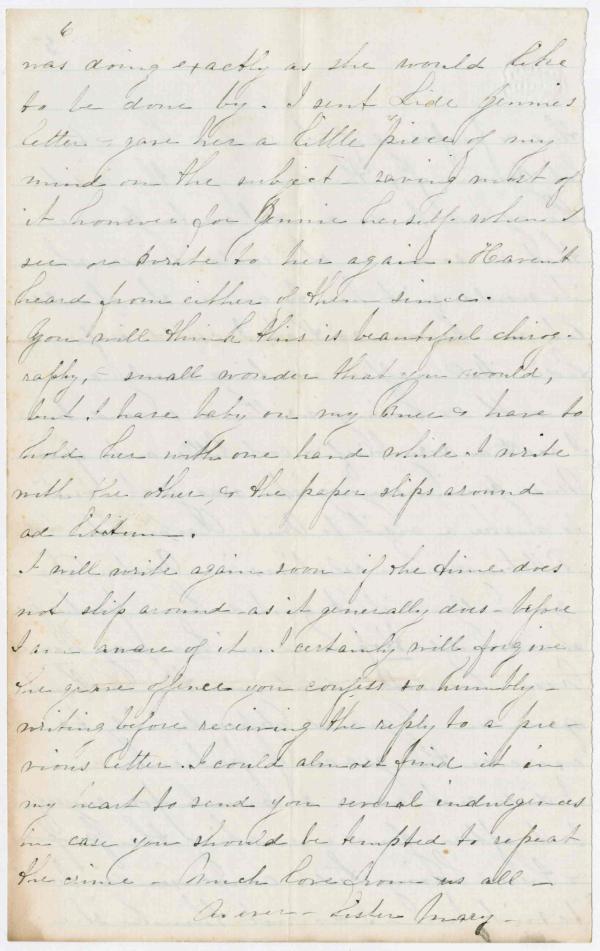 6
was doing exactly as she would like
to be done by. I sent Lide Jennie's
letter - gave her a little piece of my
mind on the subject - saving most of
it however for Jennie herself when I
see or write to her again. Haven't
heard from either of them since.
You will think this is beautiful chirog-
raphy, - small wonder that you would,
but I have baby on my knee & have to
hold her with one hand while I write
with the other, & the paper slips around
ad libitum.
I will write again soon - if the time does
not slip around - as it generally does - before
I am aware of it. I certainly will forgive
the grave offence you confess so humbly -
writing before receiving the reply to a pre-
vious letter. I could almost find it in
my heart to send you several indulgences
in case you should be tempted to repeat
the crime - Much love from us all -
As ever - Sister Mary -